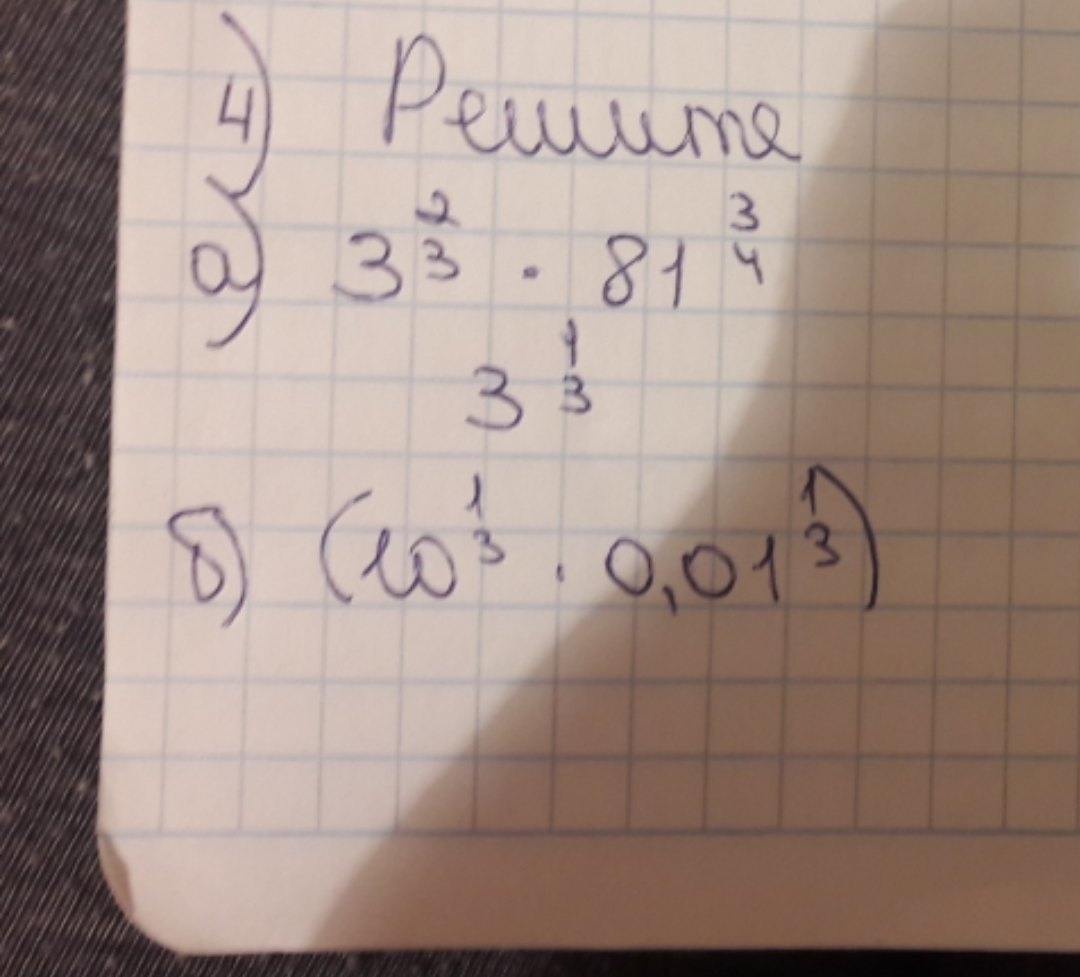 4) Решите
а) 3^2/3 · 81^3/4
3^1/3
б) (10^1/3 · 0,01^1/3)